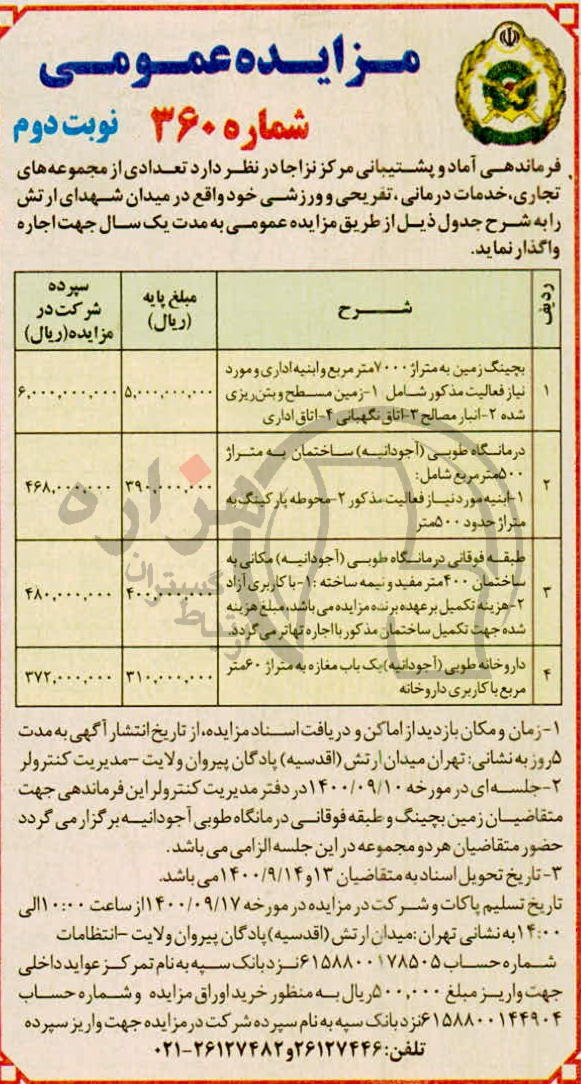 مزایده عمومی
شماره ۳۶۰ نوبت دوم
فرماندهی آماد و پشتیبانی مرکز نزاجا در نظر دارد تعدادی از مجموعه‌های
تجاری، خدمات درمانی، تفریحی و ورزشی خود واقع در میدان شهدای ارتش
را به شرح جدول ذیل از طریق مزایده عمومی به مدت یک سال جهت اجاره
واگذار نماید.
ردیف شرح مبلغ پایه (ریال) سپرده شرکت در مزایده (ریال)
۱ بچینگ زمین به متراژ ۷۰۰۰ متر مربع و ابنیه اداری و مورد
نیاز فعالیت مذکور شامل ۱- زمین مسطح و بتن‌ریزی
شده ۲- انبار مصالح ۳- اتاق نگهبانی ۴- اتاق اداری
۵,۰۰۰,۰۰۰,۰۰۰ ۶,۰۰۰,۰۰۰,۰۰۰
۲ درمانگاه طوبی (آجودانیه) ساختمان به متراژ
۵۰۰ متر مربع شامل:
۱- ابنیه مورد نیاز فعالیت مذکور ۲- محوطه پارکینگ به
متراژ حدود ۵۰۰ متر
۳۹۰,۰۰۰,۰۰۰ ۴۶۸,۰۰۰,۰۰۰
۳ طبقه فوقانی درمانگاه طوبی (آجودانیه) مکانی به
ساختمان ۴۰۰ متر مفید و نیمه ساخته: ۱- با کاربری آزاد
۲- هزینه تکمیل بر عهده برنده مزایده می باشد، مبلغ هزینه
شده جهت تکمیل ساختمان مذکور با اجاره تهاتر می گردد.
۴۰۰,۰۰۰,۰۰۰ ۴۸۰,۰۰۰,۰۰۰
۴ داروخانه طوبی (آجودانیه) یک باب مغازه به متراژ ۶۰ متر
مربع با کاربری داروخانه
۳۱۰,۰۰۰,۰۰۰ ۳۷۲,۰۰۰,۰۰۰
۱- زمان و مکان بازدید از اماکن و دریافت اسناد مزایده، از تاریخ انتشار آگهی به مدت
۵ روز به نشانی: تهران میدان ارتش (اقدسیه) پادگان پیروان ولایت - مدیریت کنترولر
۲- جلسه ای در مورخه ۱۴۰۰/۰۹/۱۰ در دفتر مدیریت کنترولر این فرماندهی جهت
متقاضیان زمین بچینگ و طبقه فوقانی درمانگاه طوبی آجودانیه برگزار می گردد
حضور متقاضیان هر دو مجموعه در این جلسه الزامی می باشد.
۳- تاریخ تحویل اسناد به متقاضیان ۱۳ و ۱۴۰۰/۹/۱۴ می باشد.
تاریخ تسلیم پاکات و شرکت در مزایده در مورخه ۱۴۰۰/۰۹/۱۷ از ساعت ۱۰:۰۰ الی
۱۴:۰۰ به نشانی تهران: میدان ارتش (اقدسیه) پادگان پیروان ولایت - انتظامات
شماره حساب ۶۱۵۸۸۰۰۱۷۸۵۰۵ نزد بانک سپه به نام تمرکز عواید داخلی
جهت واریز مبلغ ۵۰۰,۰۰۰ ریال به منظور خرید اوراق مزایده و شماره حساب
۶۱۵۸۸۰۰۱۴۴۹۰۴ نزد بانک سپه به نام سپرده شرکت در مزایده جهت واریز سپرده
تلفن: ۲۶۱۲۷۴۴۶ و ۲۶۱۲۷۴۸۲-۰۲۱
هزاره
ارتباط گستران